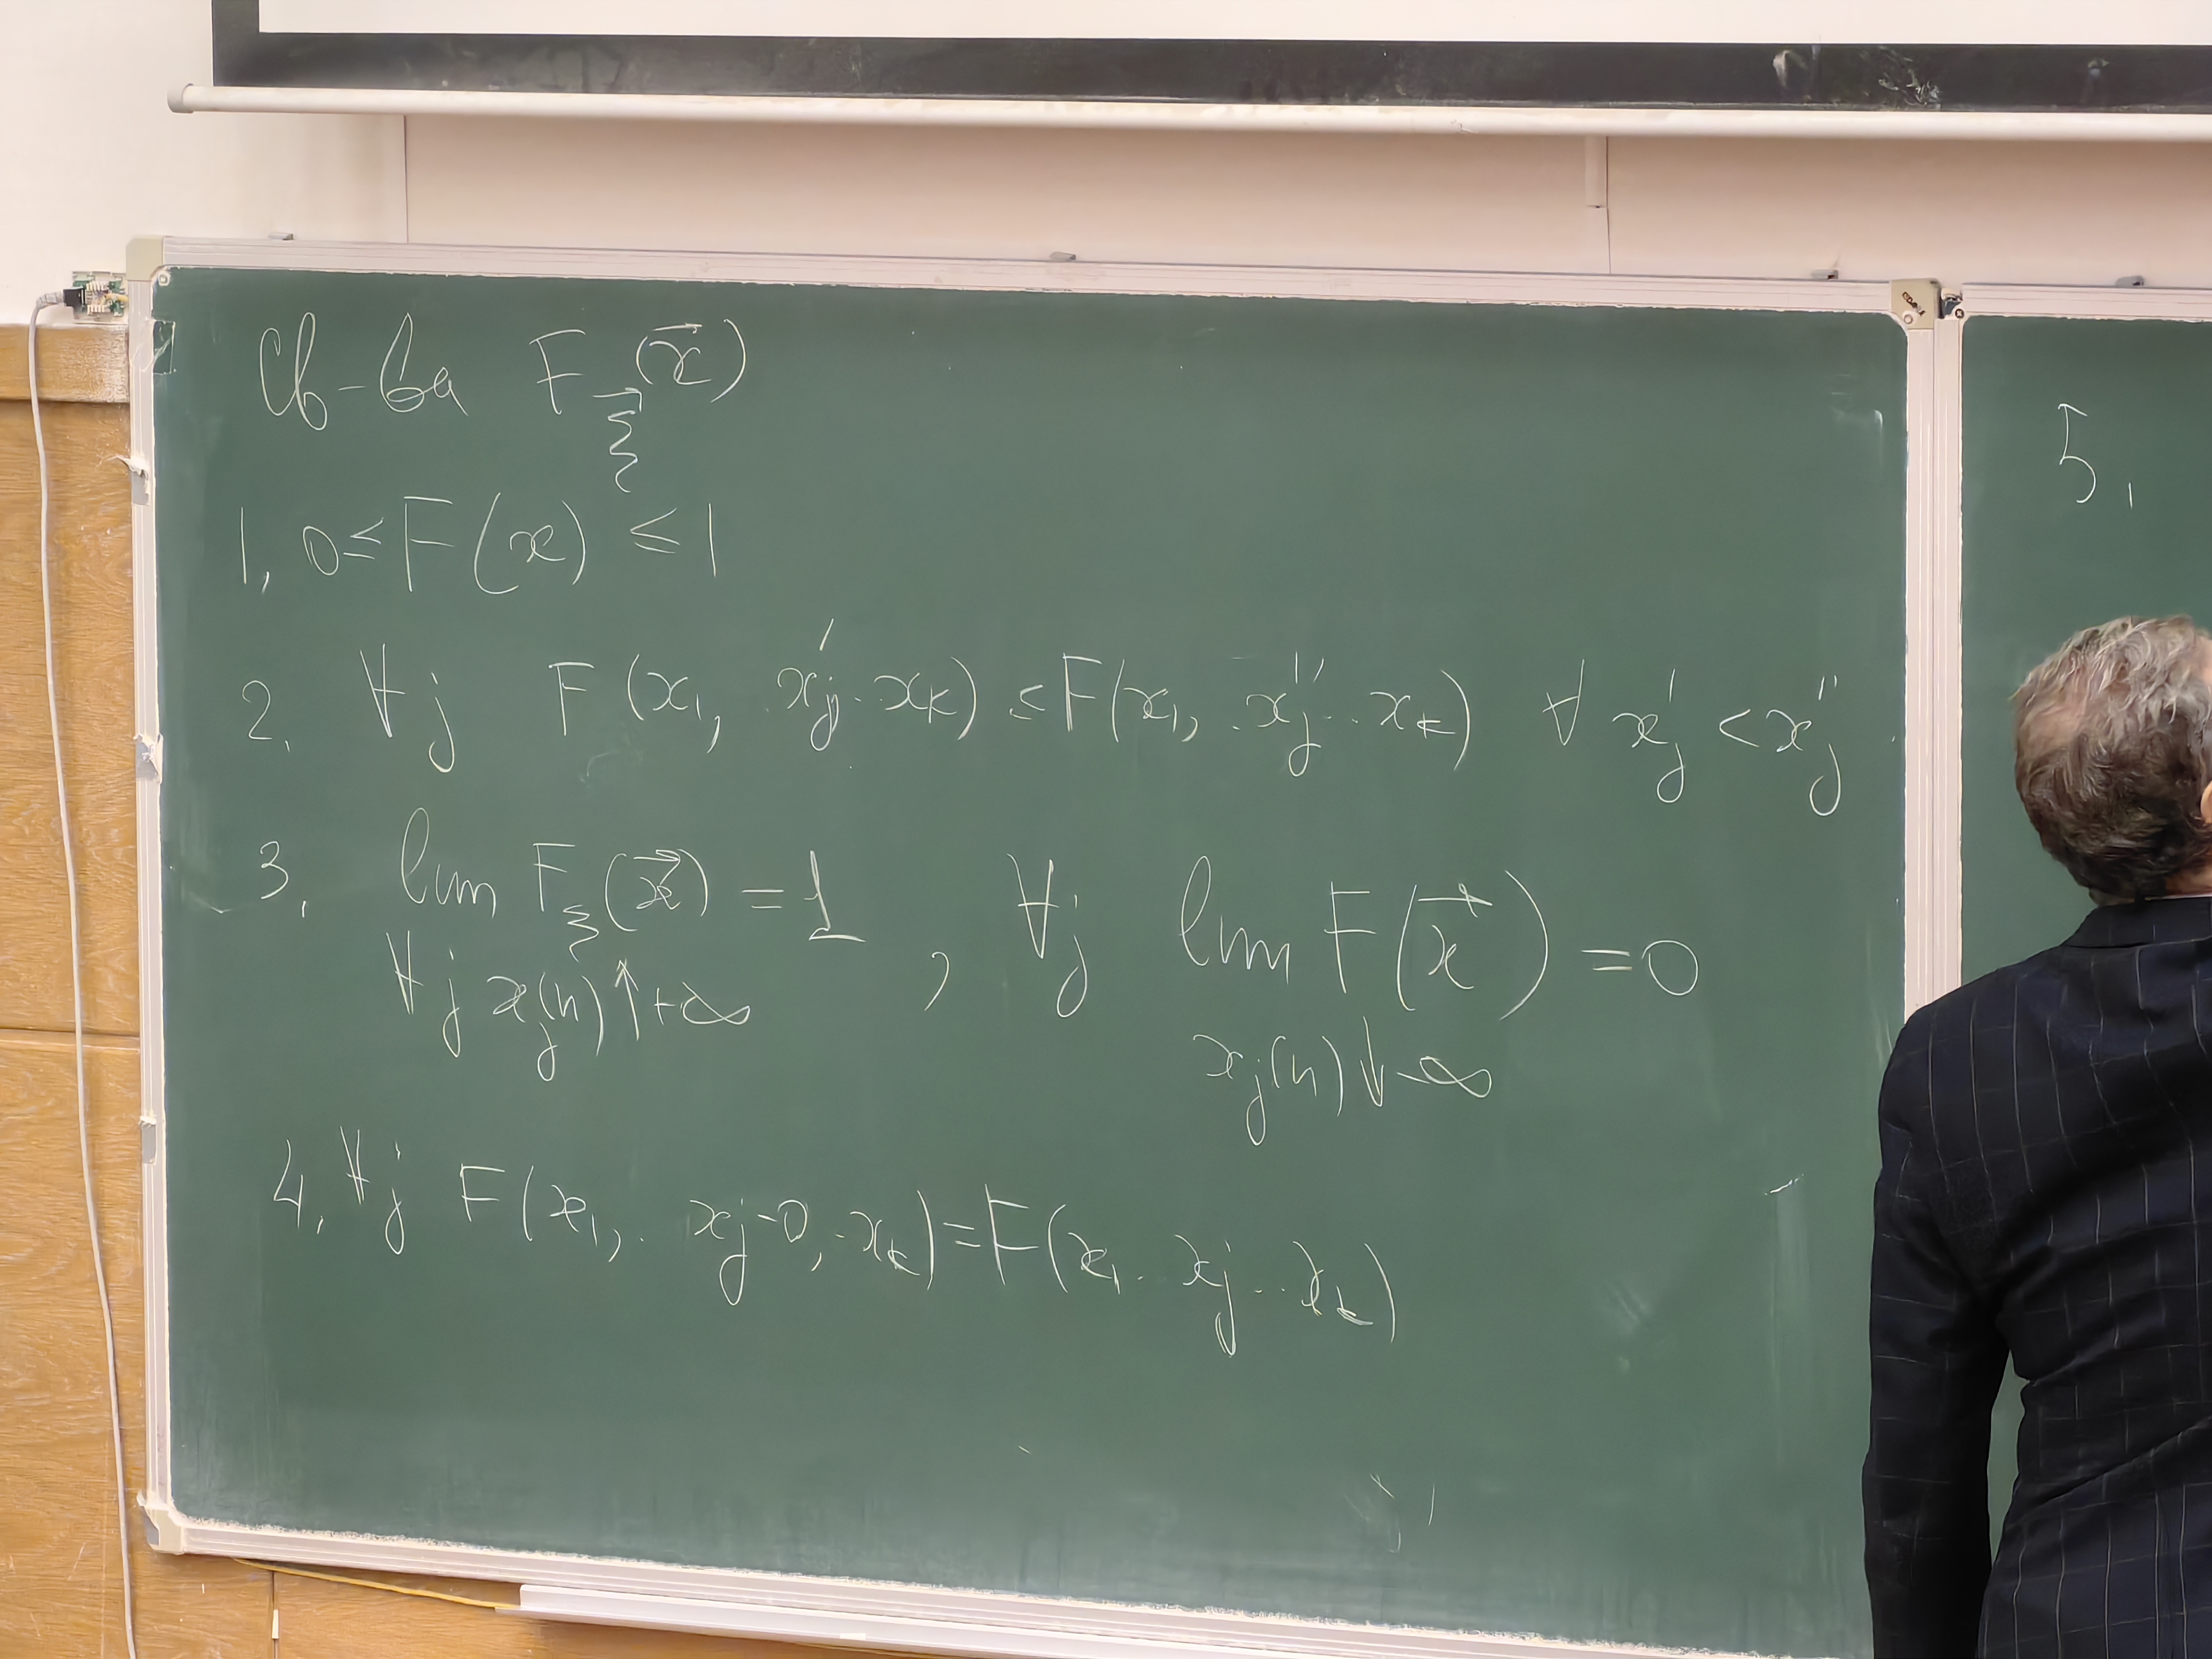 Св-ва F_ξ⃗(x⃗)
1, 0≤F(x) ≤1
2. ∀j F(x₁, .x'ⱼ..xₖ) ≤F(x₁, .x''ⱼ..xₖ) ∀ x'ⱼ <x''ⱼ
3, lim F_ξ(x⃗) =1 , ∀j lim F(x⃗) =0
∀j xⱼ(n)↑+∞ xⱼ(n)↓-∞
4, ∀j F(x₁,. xⱼ-0,.xₖ)=F(x₁..xⱼ..xₖ)
5,